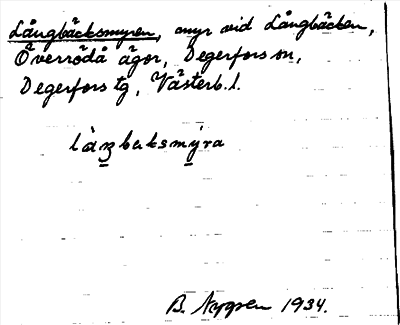 Långbäcksmyren, myr vid Långbäcken,
Överrödå ägor, Degerfors sn,
Degerfors tg, Västerb. l.
làŋbaksmýra
B. Nygren 1934.